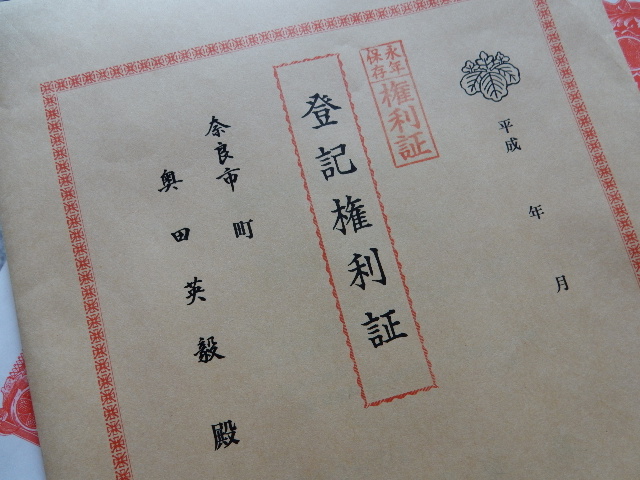 平成 年 月
永年
保存
権利証
登記権利証
奈良市 町
奥田英毅殿